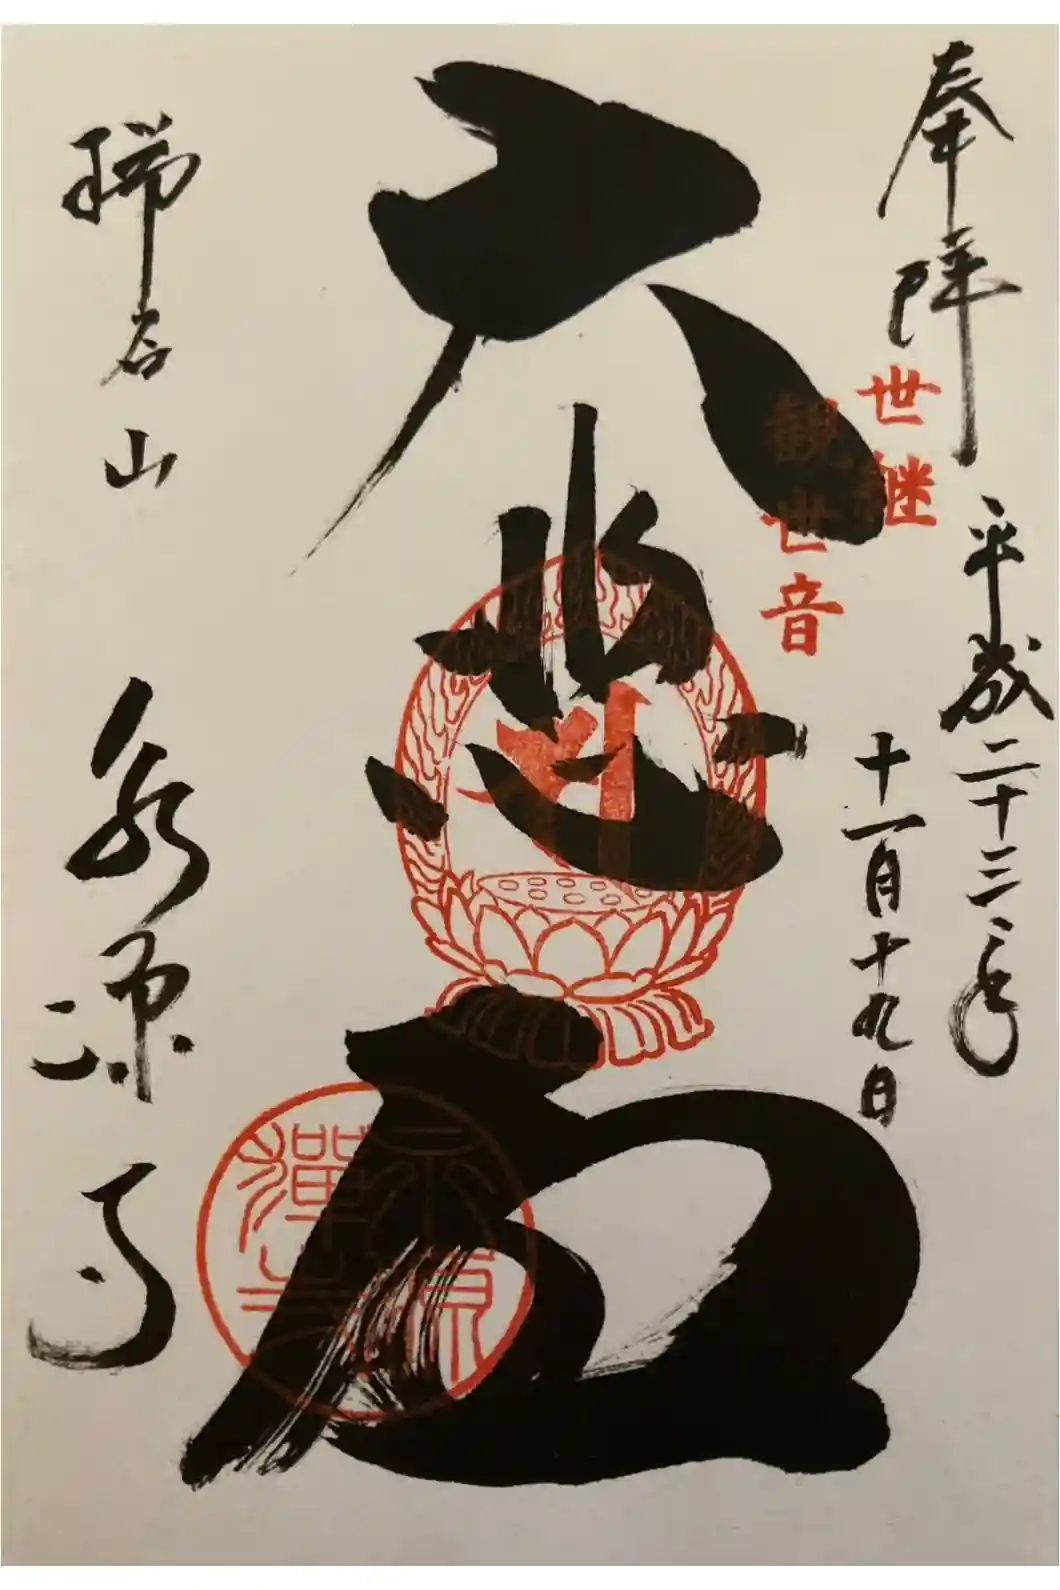 奉拝
平成二十三年
十一月十九日
世継
観世音
大悲殿
瑞石山
永源寺
永源禅寺